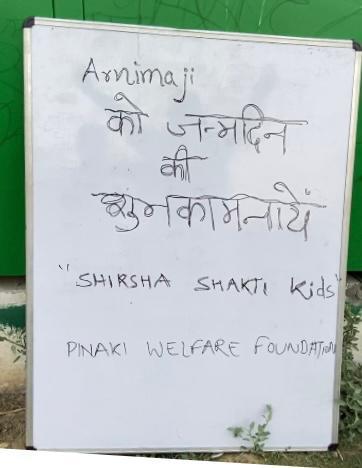 Arnimaji
को जन्मदिन
की
शुभकामनायें
"SHIRSHA SHAKTI Kids"
PINAKI WELFARE FOUNDATION